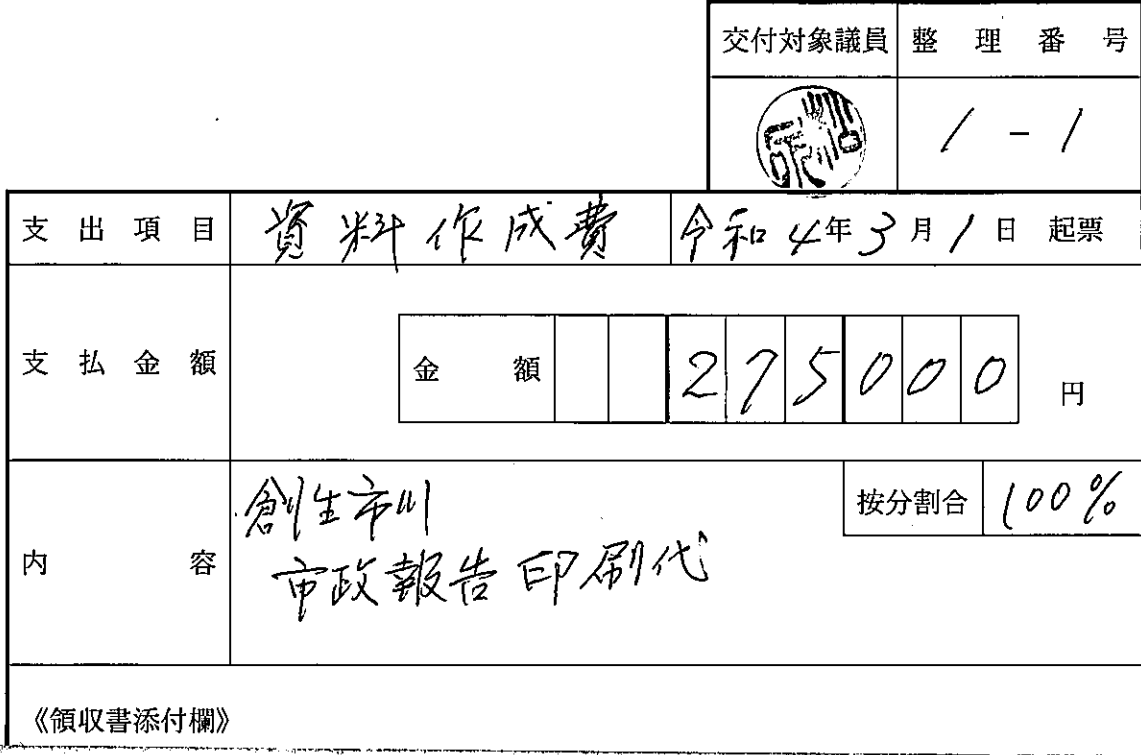 交付対象議員 整理番号
1-1
支出項目 資料作成費 令和4年3月1日 起票
支払金額 金額 275000 円
内容 創生市川 按分割合 100%
市政報告印刷代
《領収書添付欄》